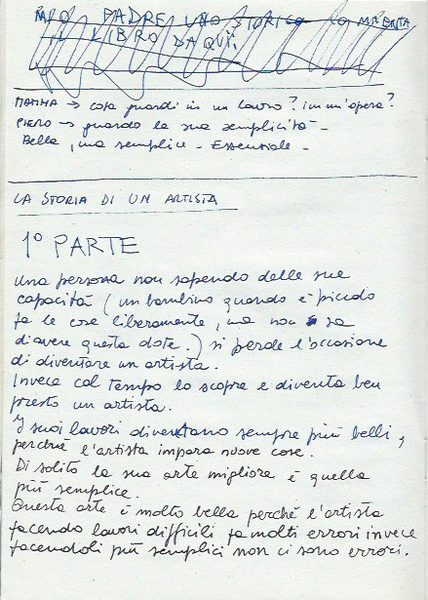 MIO PADRE UNO STORICO LO MMENTA
IL LIBRO DA QUI.
MAMMA → cosa guardi in un lavoro? in un'opera?
PIERO → guardo la sua semplicità -
Bella, ma semplice - Essenziale -
LA STORIA DI UN ARTISTA
1° PARTE
una persona non sapendo delle sue
capacità (un bambino quando è piccolo
fa le cose liberamente, ma non sa
d'avere questa dote.) si perde l'occasione
di diventare un artista.
Invece col tempo lo scopre e diventa ben
presto un artista.
I suoi lavori diventano sempre più belli,
perché l'artista impara nuove cose.
Di solito la sua arte migliore è quella
più semplice.
Questa arte è molto bella perché l'artista
facendo lavori difficili fa molti errori invece
facendoli più semplici non ci sono errori.